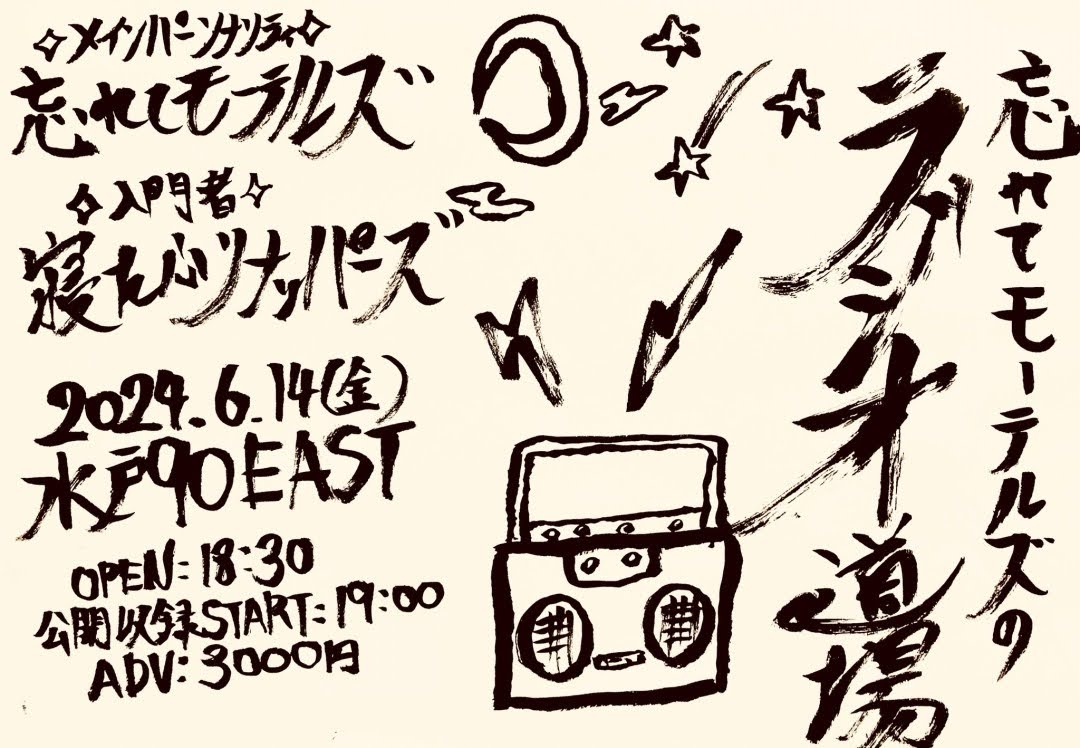 忘れてモーテルズの
ラジオ道場
✧メインパーソナリティ✧
忘れてモーテルズ
✧入門者✧
寝たふりナッパーズ
2024.6.14(金)
水戸90EAST
OPEN:18:30
公開収録START:19:00
ADV:3000円